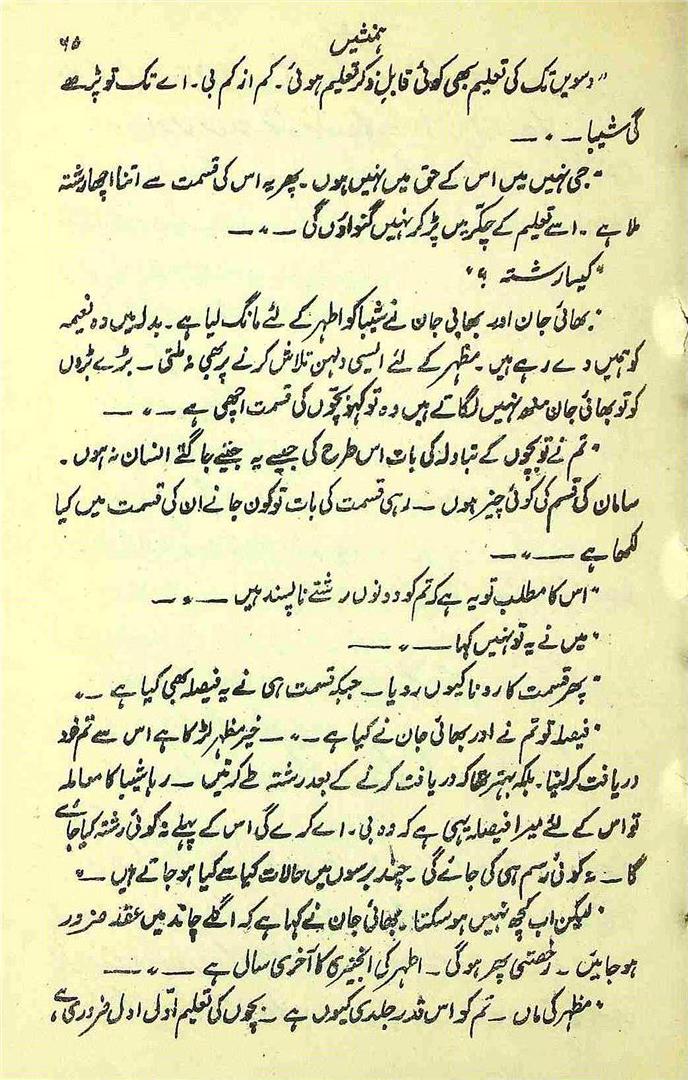 ہمنشیں
۶۵
”دسویں تک کی تعلیم بھی کوئی قابلِ ذکر تعلیم ہوئی۔ کم از کم بی۔ اے تک تو پڑھے
گی شیبا ــ ۰ ــ
”جی نہیں میں اس کے حق میں نہیں ہوں۔ پھر یہ اس کی قسمت سے اتنا اچھا رشتہ
ملا ہے۔ اسے تعلیم کے چکّر میں پڑ کر نہیں گنواؤں گی ــ ” ــ
”کیسا رشتہ ؟“
”بھائی جان اور بھابی جان نے شیبا کو اطہر کے لئے مانگ لیا ہے۔ بدلہ میں وہ نعیمہ
کو ہمیں دے رہے ہیں۔ مظہر کے لئے ایسی دلہن تلاش کرنے پر بھی نہ ملتی ــ بڑے بڑوں
کو تو بھائی جان منھ نہیں لگاتے ہیں وہ تو کہو بچّوں کی قسمت اچھی ہے ــ ” ــ
”تم نے تو بچّوں کے تبادلہ کی بات اس طرح کی جیسے یہ جیتے جاگتے انسان نہ ہوں۔
سامان کی قسم کی کوئی چیز ہوں ــ رہی قسمت کی بات تو کون جانے ان کی قسمت میں کیا
لکھا ہے ــ ” ــ
”اس کا مطلب تو یہ ہے کہ تم کو دونوں رشتے ناپسند ہیں ــ ” ــ
”میں نے یہ تو نہیں کہا ــ ” ــ
”پھر قسمت کا رونا کیوں رویا ــ جبکہ قسمت ہی نے یہ فیصلہ بھی کیا ہے ــ “
”فیصلہ تو تم نے اور بھائی جان نے کیا ہے ــ ” ــ خیر مظہر لڑکا ہے اس سے تم خود
دریافت کر لینا۔ بلکہ بہتر تھا کہ دریافت کرنے کے بعد رشتہ طے کرتیں ــ رہا شیبا کا معاملہ
تو اس کے لئے میرا فیصلہ یہی ہے کہ وہ بی۔ اے کرے گی اس کے پہلے نہ کوئی رشتہ کیا جائے
گا ــ نہ کوئی رسم ہی کی جائے گی۔ چند برسوں میں حالات کیا سے کیا ہو جاتے ہیں ــ “
”لیکن اب کچھ نہیں ہو سکتا۔ بھائی جان نے کہا ہے کہ اگلے چاند میں عقد ضرور
ہو جائیں ــ رخصتی پھر ہو گی ــ اطہر کی انجینری کا آخری سال ہے ــ ” ــ
”مظہر کی ماں ــ تم کو اس قدر جلدی کیوں ہے ــ بچوں کی تعلیم اوّل اول ضروری ہے،